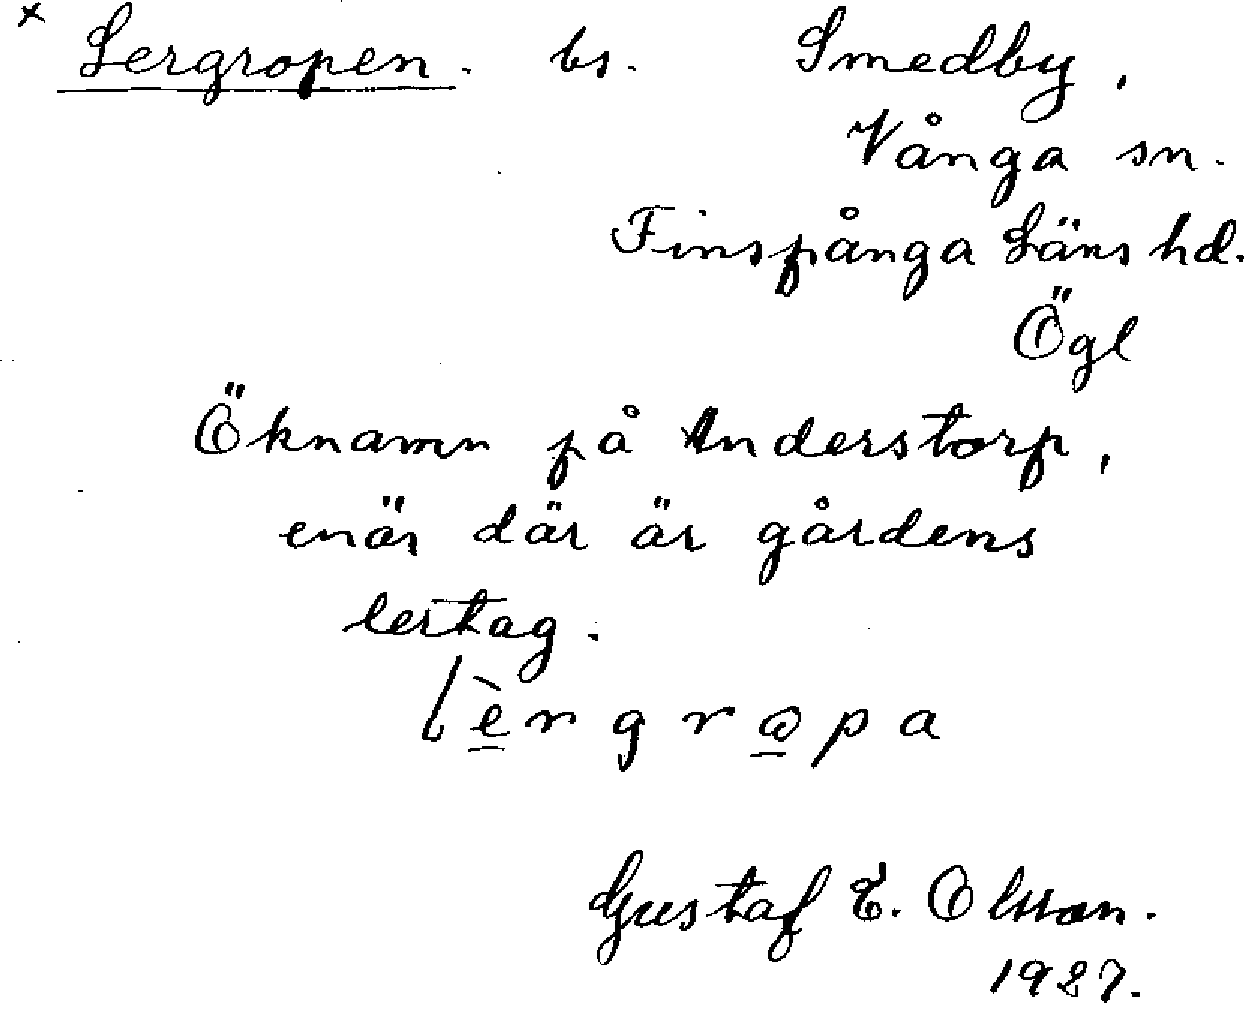 × Lergropen. bs. Smedby,
Vånga sn.
Finspånga Läns hd.
Ögl
Öknamn på Anderstorp,
enär där är gårdens
lertag.
lèrgrωpa
Gustaf E. Olsson.
1927.